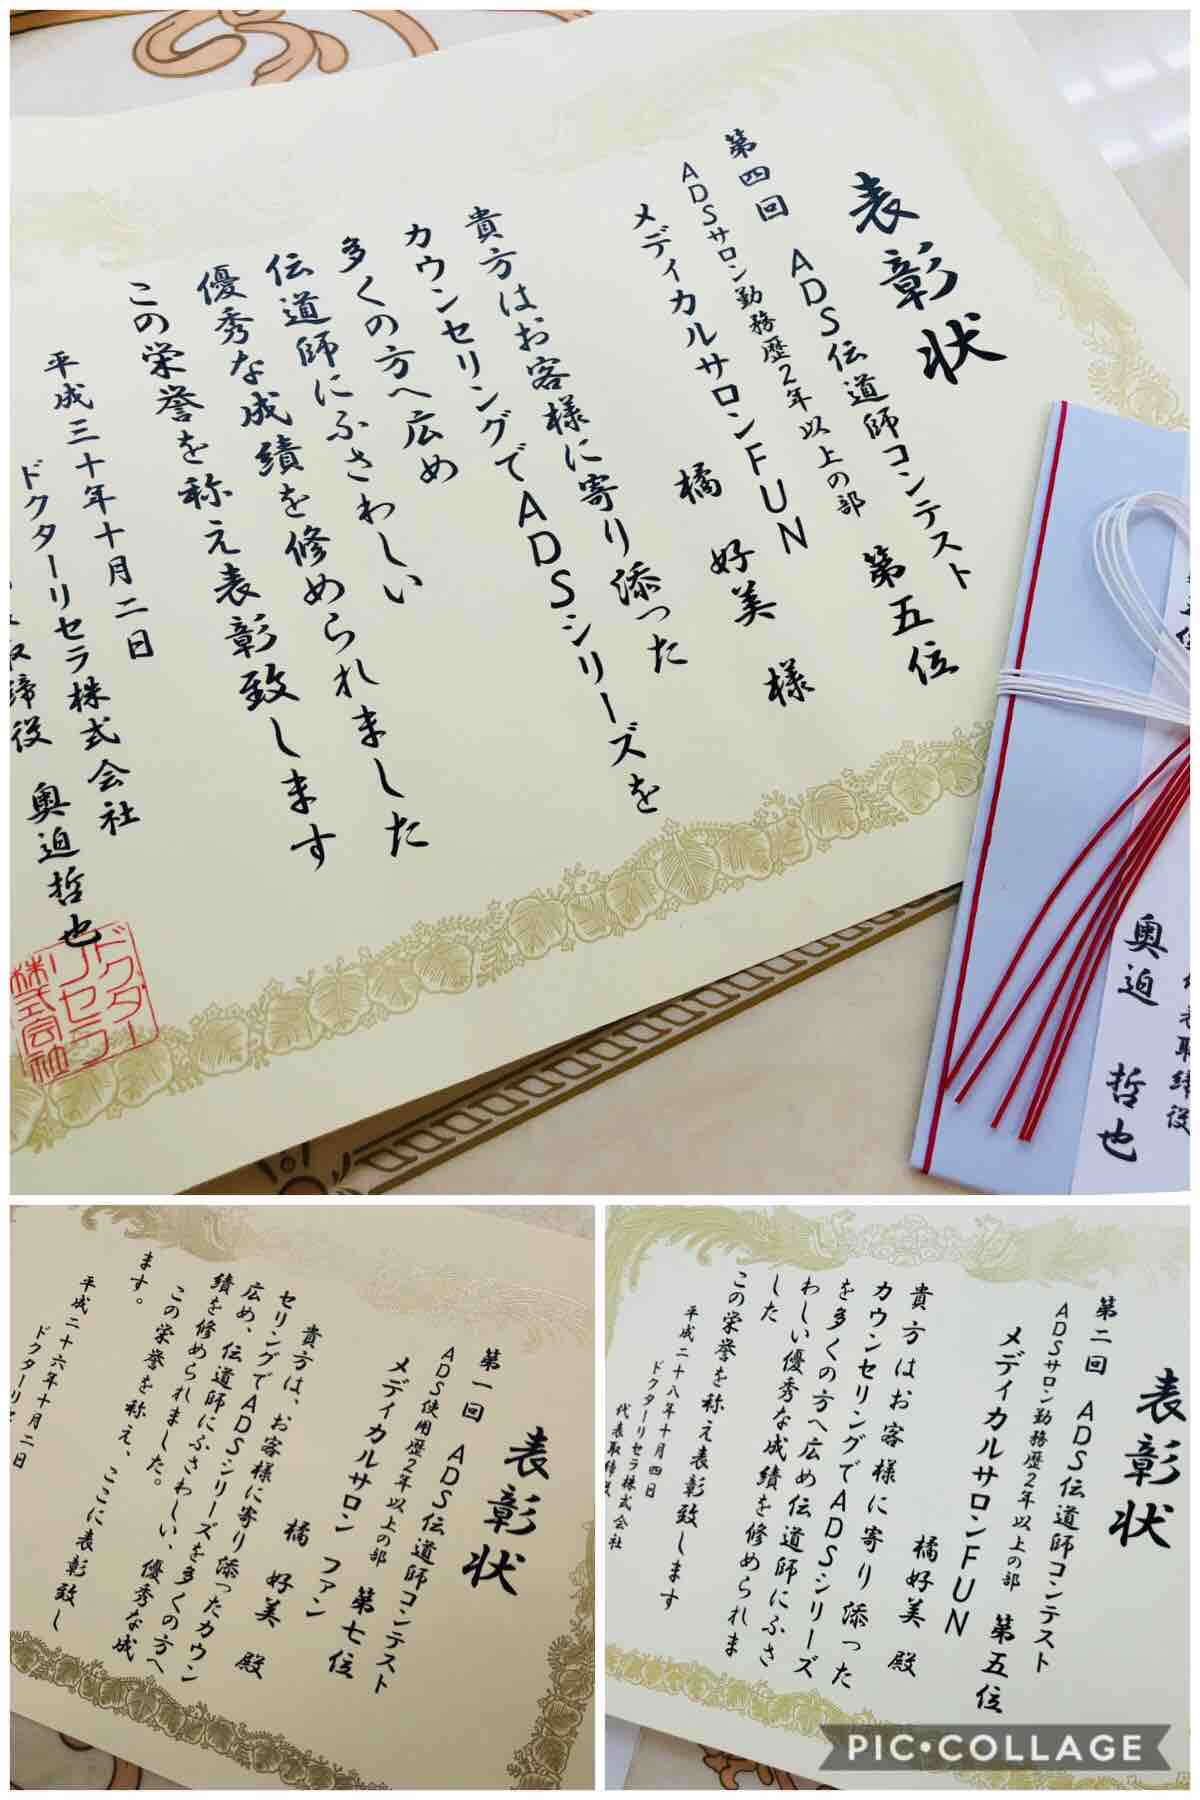 表彰状
第四回 ADS伝道師コンテスト
ADSサロン勤務歴2年以上の部 第五位
メディカルサロンFUN
橘 好美 様
貴方はお客様に寄り添った
カウンセリングでADSシリーズを
多くの方へ広め
伝道師にふさわしい
優秀な成績を修められました
この栄誉を称え表彰致します
平成三十年十月二日
ドクターリセラ株式会社
取締役 奥迫哲也
ドクターリセラ株式会社
代表取締役
奥迫 哲也
表彰状
第一回 ADS伝道師コンテスト
ADS使用歴2年以上の部 第七位
メディカルサロン ファン
橘 好美 殿
貴方は、お客様に寄り添ったカウン
セリングでADSシリーズを多くの方へ
広め、伝道師にふさわしい、優秀な成
績を修められました。
この栄誉を称え、ここに表彰致し
ます。
平成二十六年十月二日
ドクターリセ
表彰状
第二回 ADS伝道師コンテスト
ADSサロン勤務歴2年以上の部 第五位
メディカルサロンFUN
橘好美 殿
貴方はお客様に寄り添った
カウンセリングでADSシリーズ
を多くの方へ広め伝道師にふさ
わしい優秀な成績を修められま
した
この栄誉を称え表彰致します
平成二十八年十月四日
ドクターリセラ株式会社
代表取締役
PIC•COLLAGE